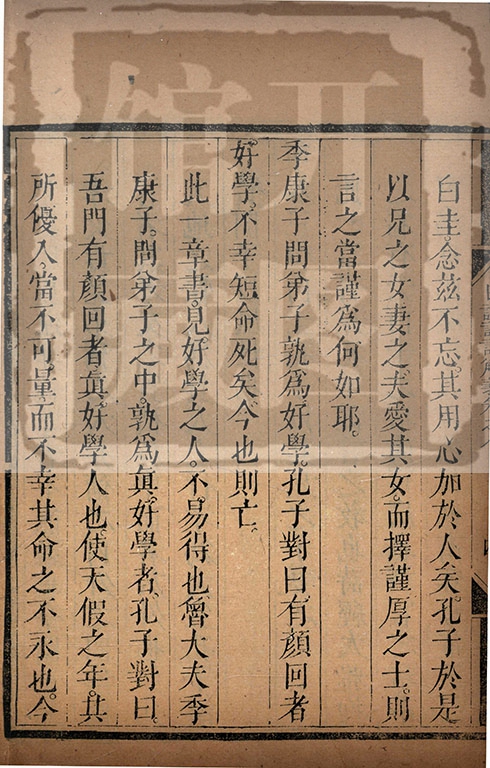 白圭念茲不忘。其用心加於人矣。孔子於是
以兄之女妻之。夫愛其女。而擇謹厚之士。則
言之當謹爲何如耶。
季康子問弟子孰爲好學。孔子對曰。有顏回者
好學。不幸短命死矣。今也則亡。
此一章書。見好學之人。不易得也。魯大夫季
康子。問弟子之中。孰爲眞好學者。孔子對曰。
吾門有顏回者。眞好學人也。使天假之年。其
所優入當不可量。而不幸其命之不永也。今